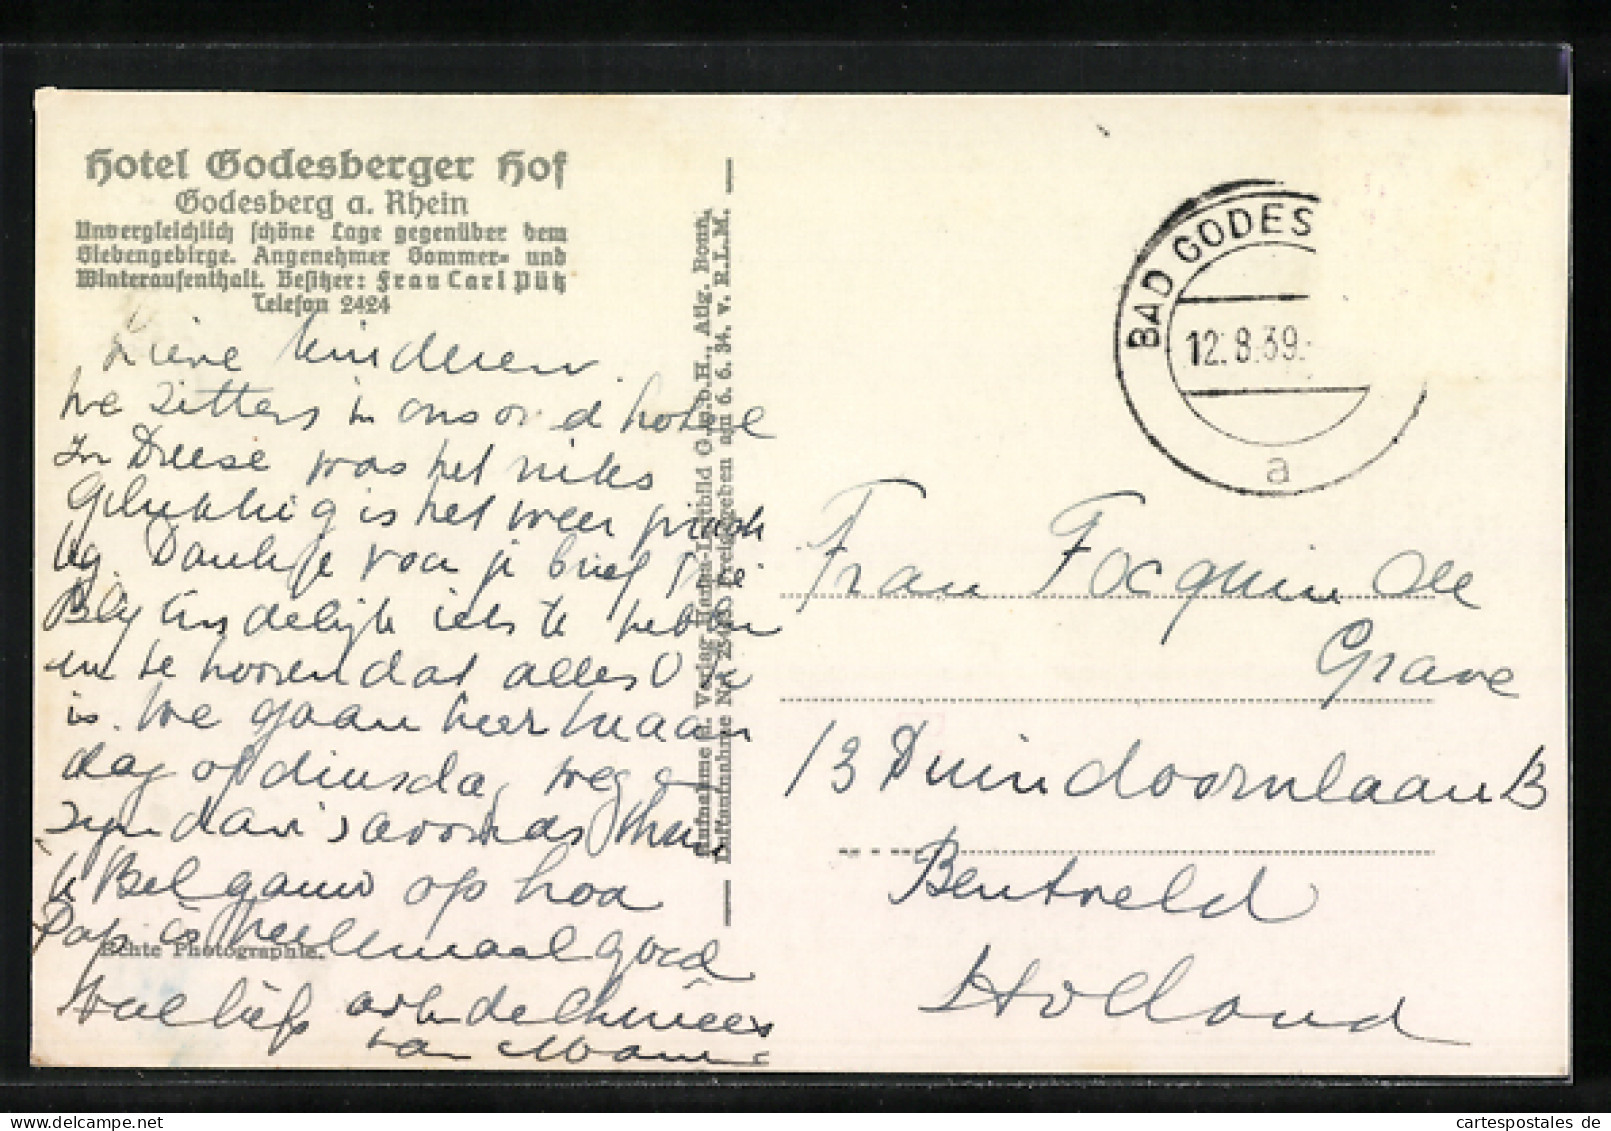 Hotel Godesberger Hof
Godesberg a. Rhein
Unvergleichlich schöne Lage gegenüber dem
Siebengebirge. Angenehmer Sommer- und
Winteraufenthalt. Besitzer: Frau Carl Pütz
Telefon 2424
Lieve kinderen
We zitten in ons oud hotel
In was het niks
Gelukkig is het weer prach
tig. Dankje voor je brief
Blij eindelijk iets te hebben
en te hooren dat alles
is. We gaan hier Maan
dag of dinsdag weg
zijn dan 's avonds thuis
op
Pap is heelemaal goed
Echte Photographie.
Veel liefs ook de
van Mam
Aufnahme u. Verlag Hansa-Luftbild G.m.b.H., Atlg. Bonn,
Luftaufnahme Nr. Freigegeben am 6. 6. 34. v. R.L.M.
BAD GODES
12.8.39.-
a
Frau Focquin de
Grave
13 Duindoornlaan B
Bentveld
Holland
cartespostales de